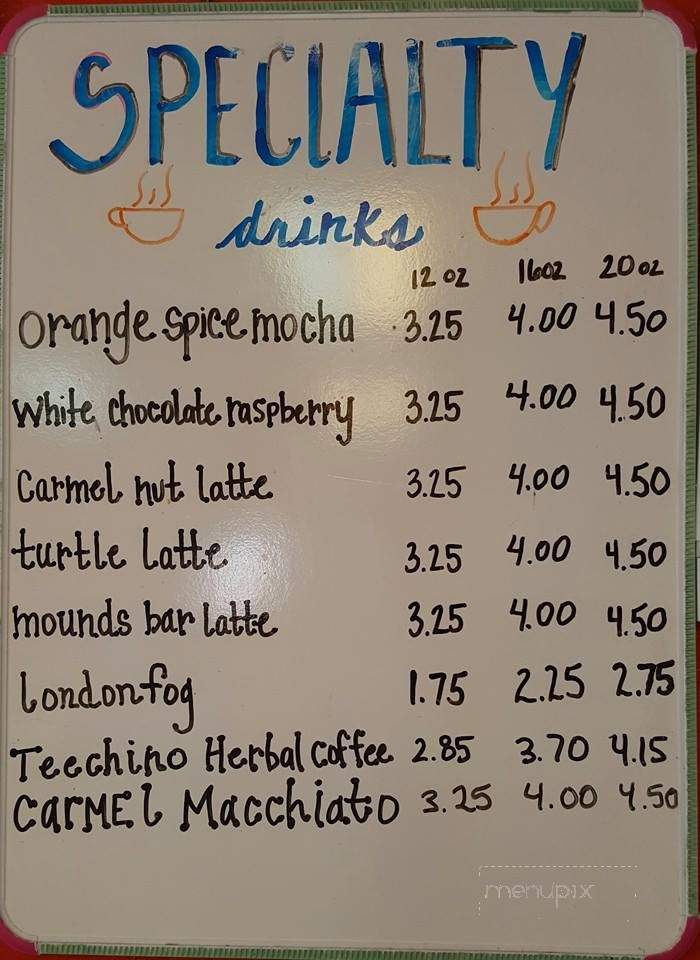 SPECIALTY
drinks
12 oz 16oz 20 oz
Orange Spice mocha 3.25 4.00 4.50
White chocolate raspberry 3.25 4.00 4.50
Carmel nut latte 3.25 4.00 4.50
turtle latte 3.25 4.00 4.50
mounds bar latte 3.25 4.00 4.50
londonfog 1.75 2.25 2.75
Teechino Herbal coffee 2.85 3.70 4.15
CARMEL Macchiato 3.25 4.00 4.50
menupix